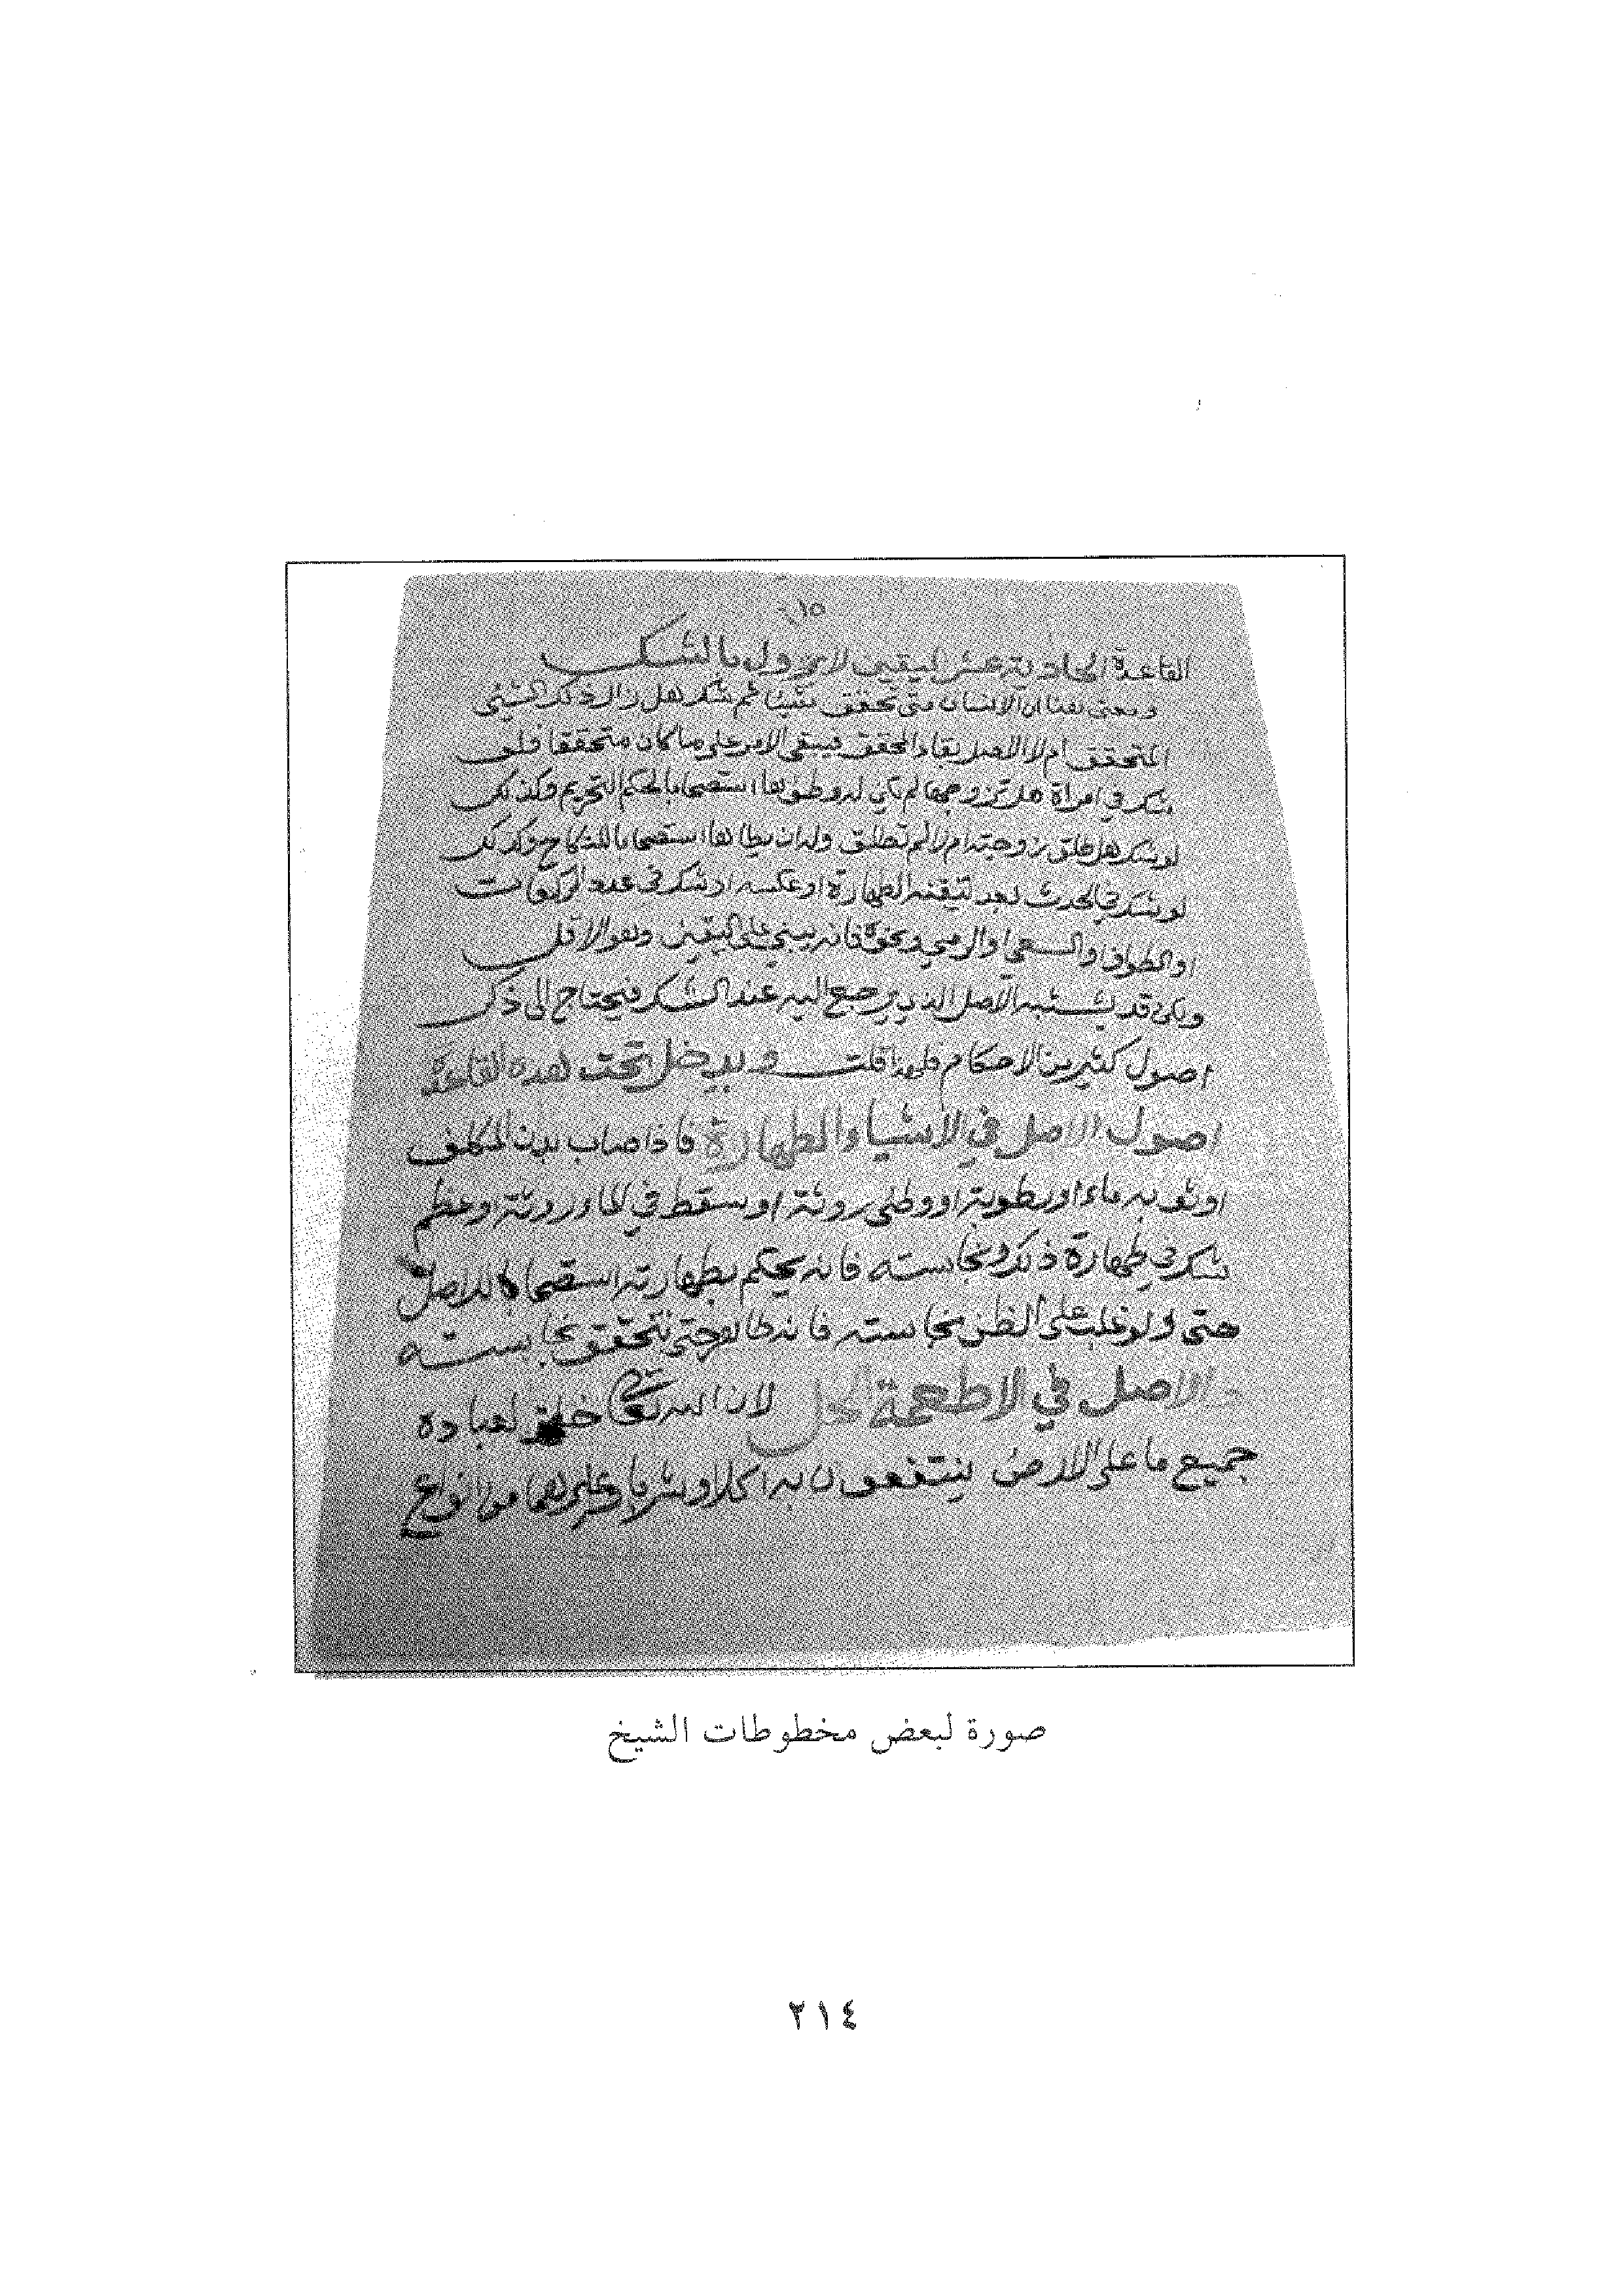 ١٥
القاعدة الحادية عشر اليقين لا يزول بالشك
ومعنى هذا ان الانسان متى تحقق شيئا ثم شك هل زال ذلك الشيئ
المتحقق ام لا الاصل بقاء المحقق فيبقى الامر على ما كان متحققا فلو
شك في امراة هل تزوجها لم يكن له وطؤها استصحابا لحكم التحريم وكذلك
لو شك هل طلق زوجته ام لا لم تطلق وله ان يطاها استصحابا للنكاح وكذلك
لو شك في الحدث بعد تيقنه الطهارة او عكسه او شك في عدد الركعات
او الطواف او السعي او الرمي ونحوه فانه يبني على اليقين وهو الاقل
ولكن قد يشتبه الاصل الذي يرجع اليه عند الشك فيحتاج الى ذكر
اصول كثير من الاحكام فلهذا قلت ويدخل تحت هذه القاعدة
اصول الاصل في الاشياء الطهارة فاذا صاب بدن المكلف
او ثوبه ماء او رطوبة او وطئ روثة او سقط في الماء روثة او عظم
شك في طهارة ذلك ونجاسته فانه يحكم بطهارته استصحابا للاصل
حتى ولو غلب على الظن نجاسته فانه طاهر حتى نتحقق نجاسته
الاصل في الاطعمة الحل لان الله تعالى خلق لعباده
جميع ما على الارض ينتفعون به اكلا وشربا وغيرهما من انواع
صورة لبعض مخطوطات الشيخ
٢١٤